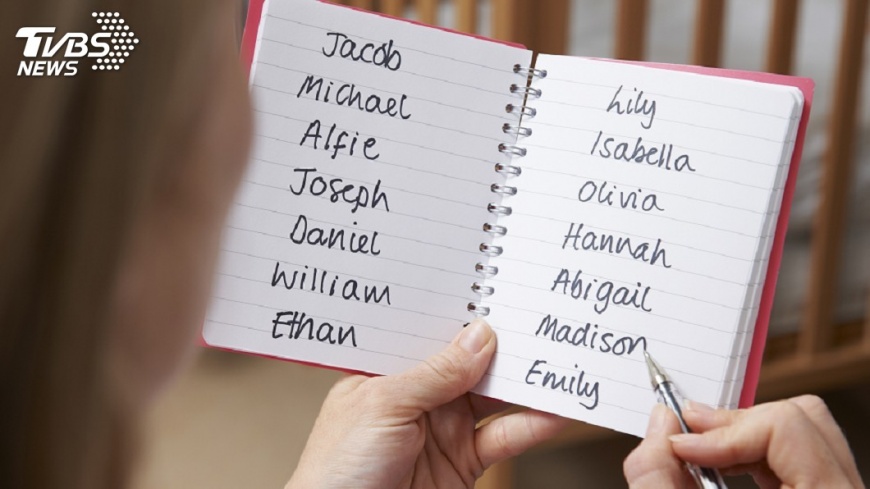 TVBS
NEWS
Jacob
Michael
Alfie
Joseph
Daniel
William
Ethan
Lily
Isabella
Olivia
Hannah
Abigail
Madison
Emily